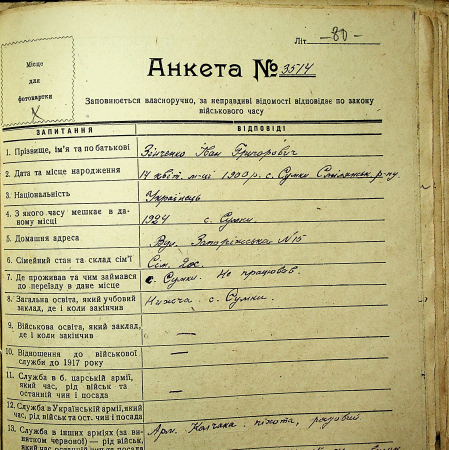 Літ. —80—
Місце
для
фотокартки
Анкета № 3514
Заповнюється власноручно, за неправдиві відомості відповідає по закону
військового часу
ЗАПИТАННЯ ВІДПОВІДІ
1. Прізвище, ім'я та по батькові Зінченко Іван Григорович
2. Дата та місце народження 14 квіт. м-ці 1900 р. с. Сумки Смілянськ. р-ну
3. Національність Українець
4. З якого часу мешкає в да-
ному місці 1924 с. Сумки.
5. Домашня адреса Вул. Запорізська №15
6. Сімейний стан та склад сім'ї Сім. 2ох.
7. Де проживав та чим займався
до переїзду в дане місце с. Сумки. Не працював.
8. Загальна освіта, який учбовий
заклад, де і коли закінчив Нижча с. Сумки.
9. Військова освіта, який заклад,
де й коли закінчив —
10. Відношення до військової
служби до 1917 року —
11. Служба в б. царській армії,
який час, рід військ та
останній чин і посада —
12. Служба в Українській армії, який
час, рід військ та ост. чин і посада
13. Служба в інших арміях (за ви-
нятком червоної) — рід військ, Арм. Колчака. піхота, рядовий
який час останній чин та посада